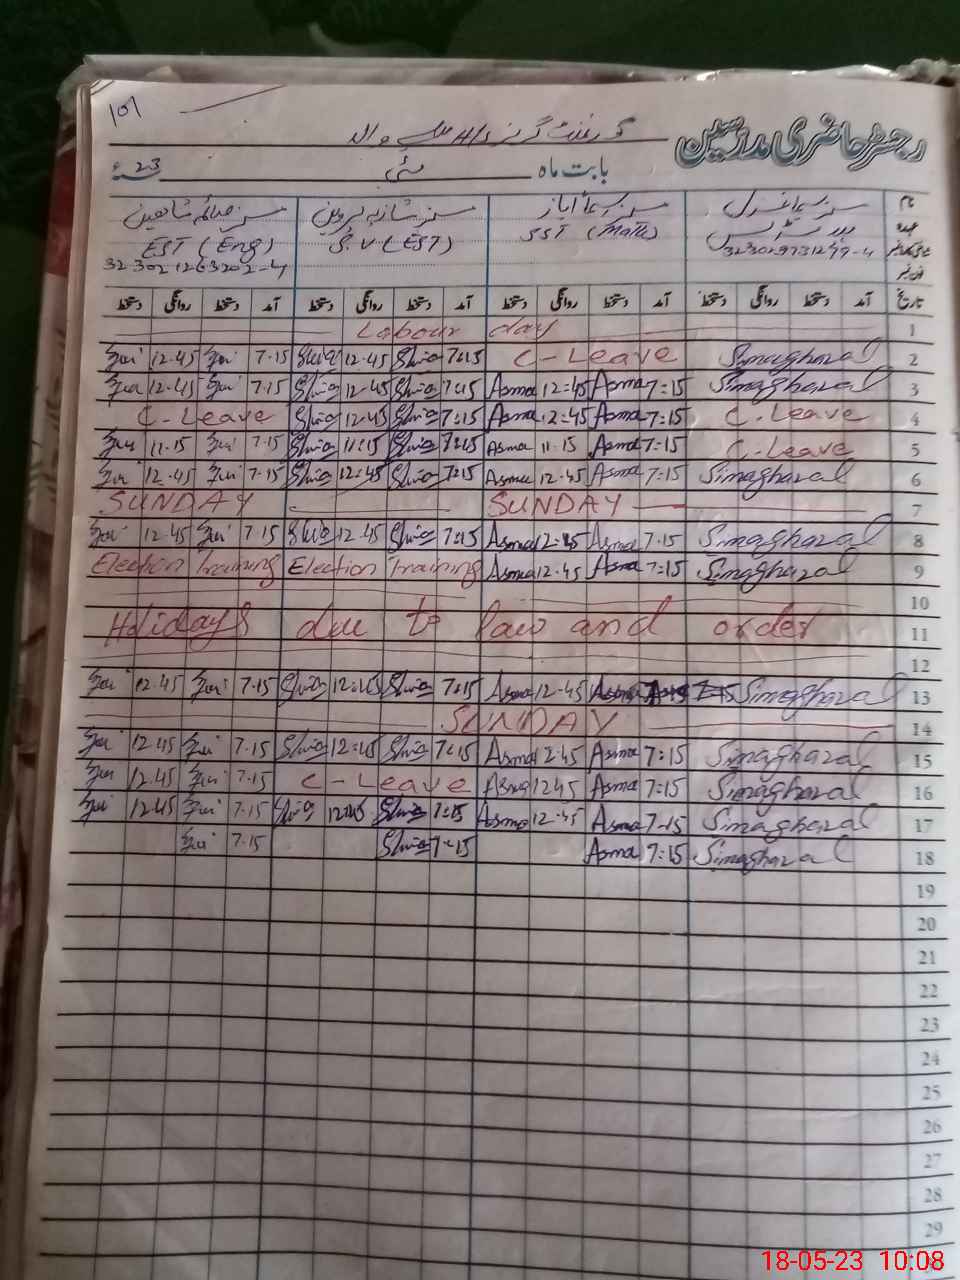 101
رجسٹر حاضری مدرسین
گورنمنٹ گرلز H/S والہ
بابت ماہ مئی 23
نام مسز سیما غزل مسز اسماء ایاز مسز شازیہ پروین مسز صائمہ شاہین
عہدہ SST (Math) S.V (EST) EST (Eng)
323029731299-4 323021263202-4
تاریخ آمد دستخط روانگی دستخط آمد دستخط روانگی دستخط آمد دستخط روانگی دستخط آمد دستخط روانگی دستخط
Labour day 1
12-45 7-15 Shazia 12-45 Shazia 7:15 C-Leave Simaghazal 2
12-45 7-15 Shazia 12-45 Shazia 7:15 Asma 12:45 Asma 7:15 Simaghazal 3
C-Leave Shazia 12-45 Shazia 7:15 Asma 12:45 Asma 7:15 C-Leave 4
11-15 7-15 Shazia 11:15 Shazia 7:15 Asma 11-15 Asma 7:15 C-Leave 5
12-45 7-15 Shazia 12:45 Shazia 7:15 Asma 12-45 Asma 7:15 Simaghazal 6
SUNDAY SUNDAY 7
12-45 7-15 Shazia 12-45 Shazia 7:15 Asma 12:45 Asma 7-15 Simaghazal 8
Election Training Election Training Asma 12-45 Asma 7:15 Simaghazal 9
10
Holidays due to law and order 11
12
12-45 7-15 Shazia 12:45 Shazia 7:15 Asma 12-45 Simaghazal 13
SUNDAY 14
12-45 7-15 Shazia 12:45 Shazia 7:15 Asma 12-45 Asma 7:15 Simaghazal 15
12-45 7-15 C-Leave Asma 12 45 Asma 7:15 Simaghazal 16
12-45 7-15 Shazia 12:45 Shazia 7:15 Asma 12-45 Asma 7-15 Simaghazal 17
7-15 Shazia 7-15 Asma 7:15 Simaghazal 18
19
20
21
22
23
24
25
26
27
28
29
18-05-23 10:08